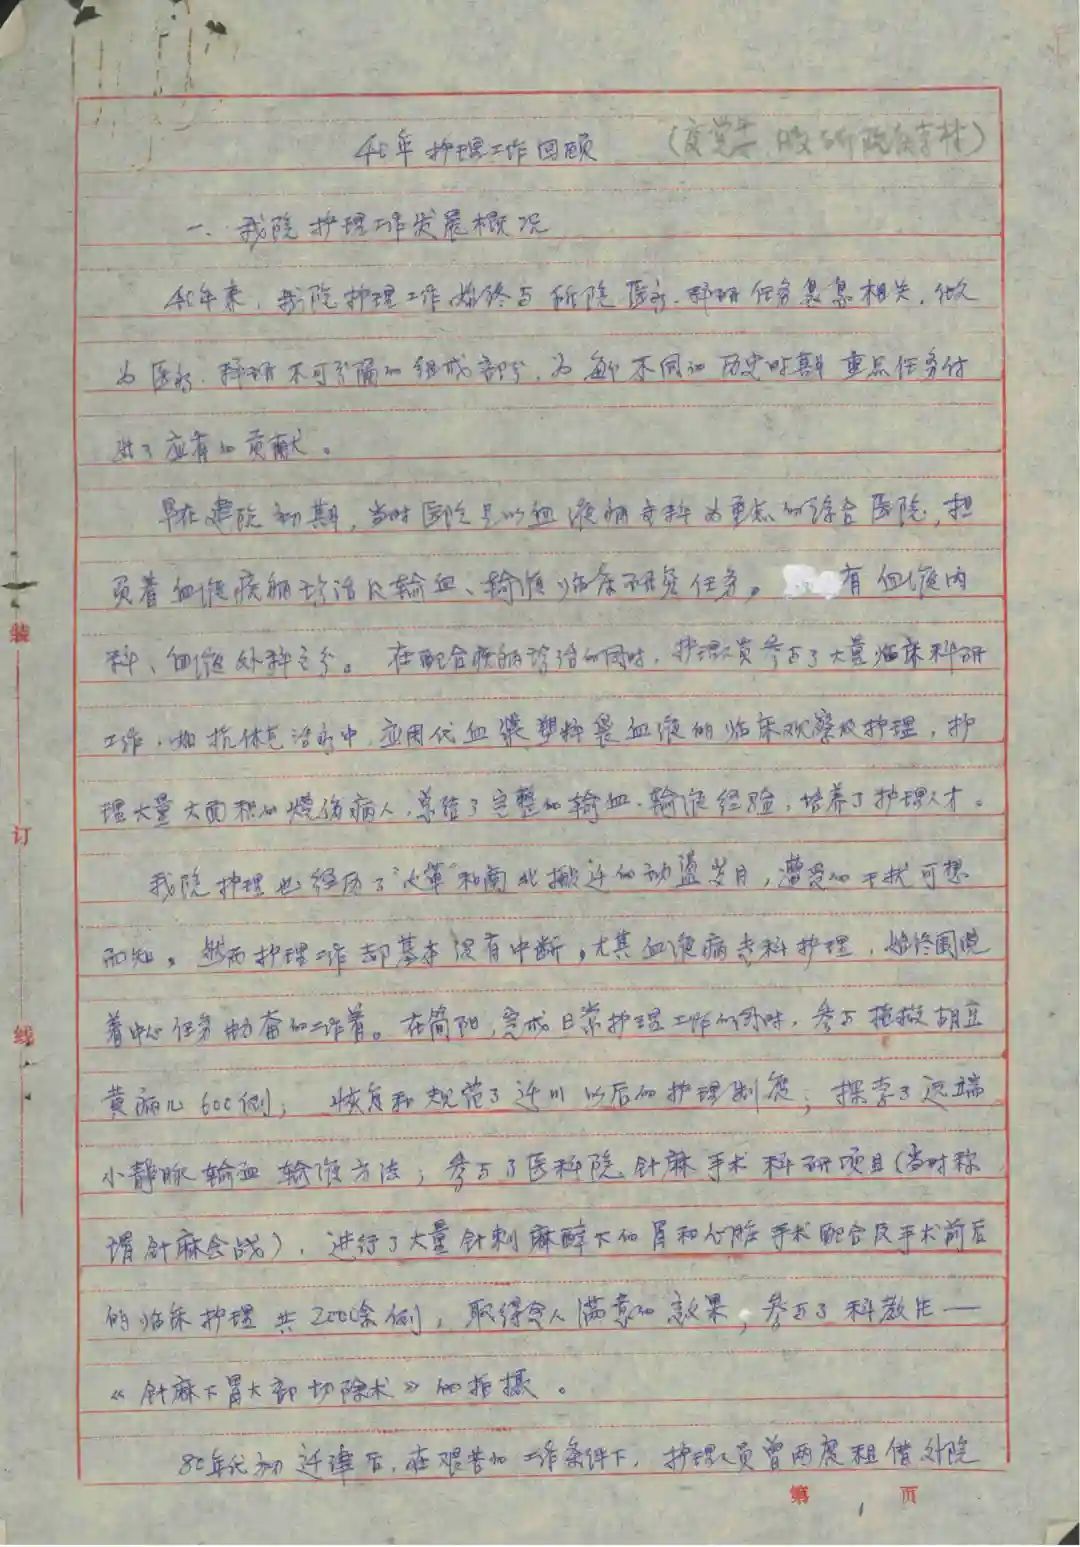 40年护理工作回顾
一、我院护理工作发展概况
40年来，我院护理工作始终与所院医疗、科研任务息息相关，做
为医疗、科研不可分割的组成部分，为每个不同的历史时期重点任务付
出了应有的贡献。
早在建院初期，当时医院是以血液病专科为重点的综合医院，担
负着血液疾病诊治及输血、输液临床研究任务。有血液内
科、血液外科之分。在配合疾病诊治的同时，护理人员参与了大量临床科研
工作，如抗休克治疗中，应用代血浆塑料袋血液的临床观察及护理，护
理大量大面积的烧伤病人，总结了完整的输血、输液经验，培养了护理人才。
我院护理也经历了“文革”和南北搬迁的动荡岁月，遭受的干扰可想
而知。然而护理工作却基本没有中断，尤其血液病专科护理，始终围绕
着中心任务勤奋的工作着。在简阳，完成日常护理工作的同时，参与抢救胡豆
黄病儿600例；恢复和规范了迁川以后的护理制度；探索了远端
小静脉输血输液方法；参与了医科院针麻手术科研项目（当时称
谓针麻会战），进行了大量针刺麻醉下的胃和心脏手术配合及手术前后
的临床护理共2000余例，取得令人满意的效果，参与了科教片——
《针麻下胃大部切除术》的拍摄。
80年代初迁津后，在艰苦的工作条件下，护理人员曾两度租借外院
装
订
线
第1页